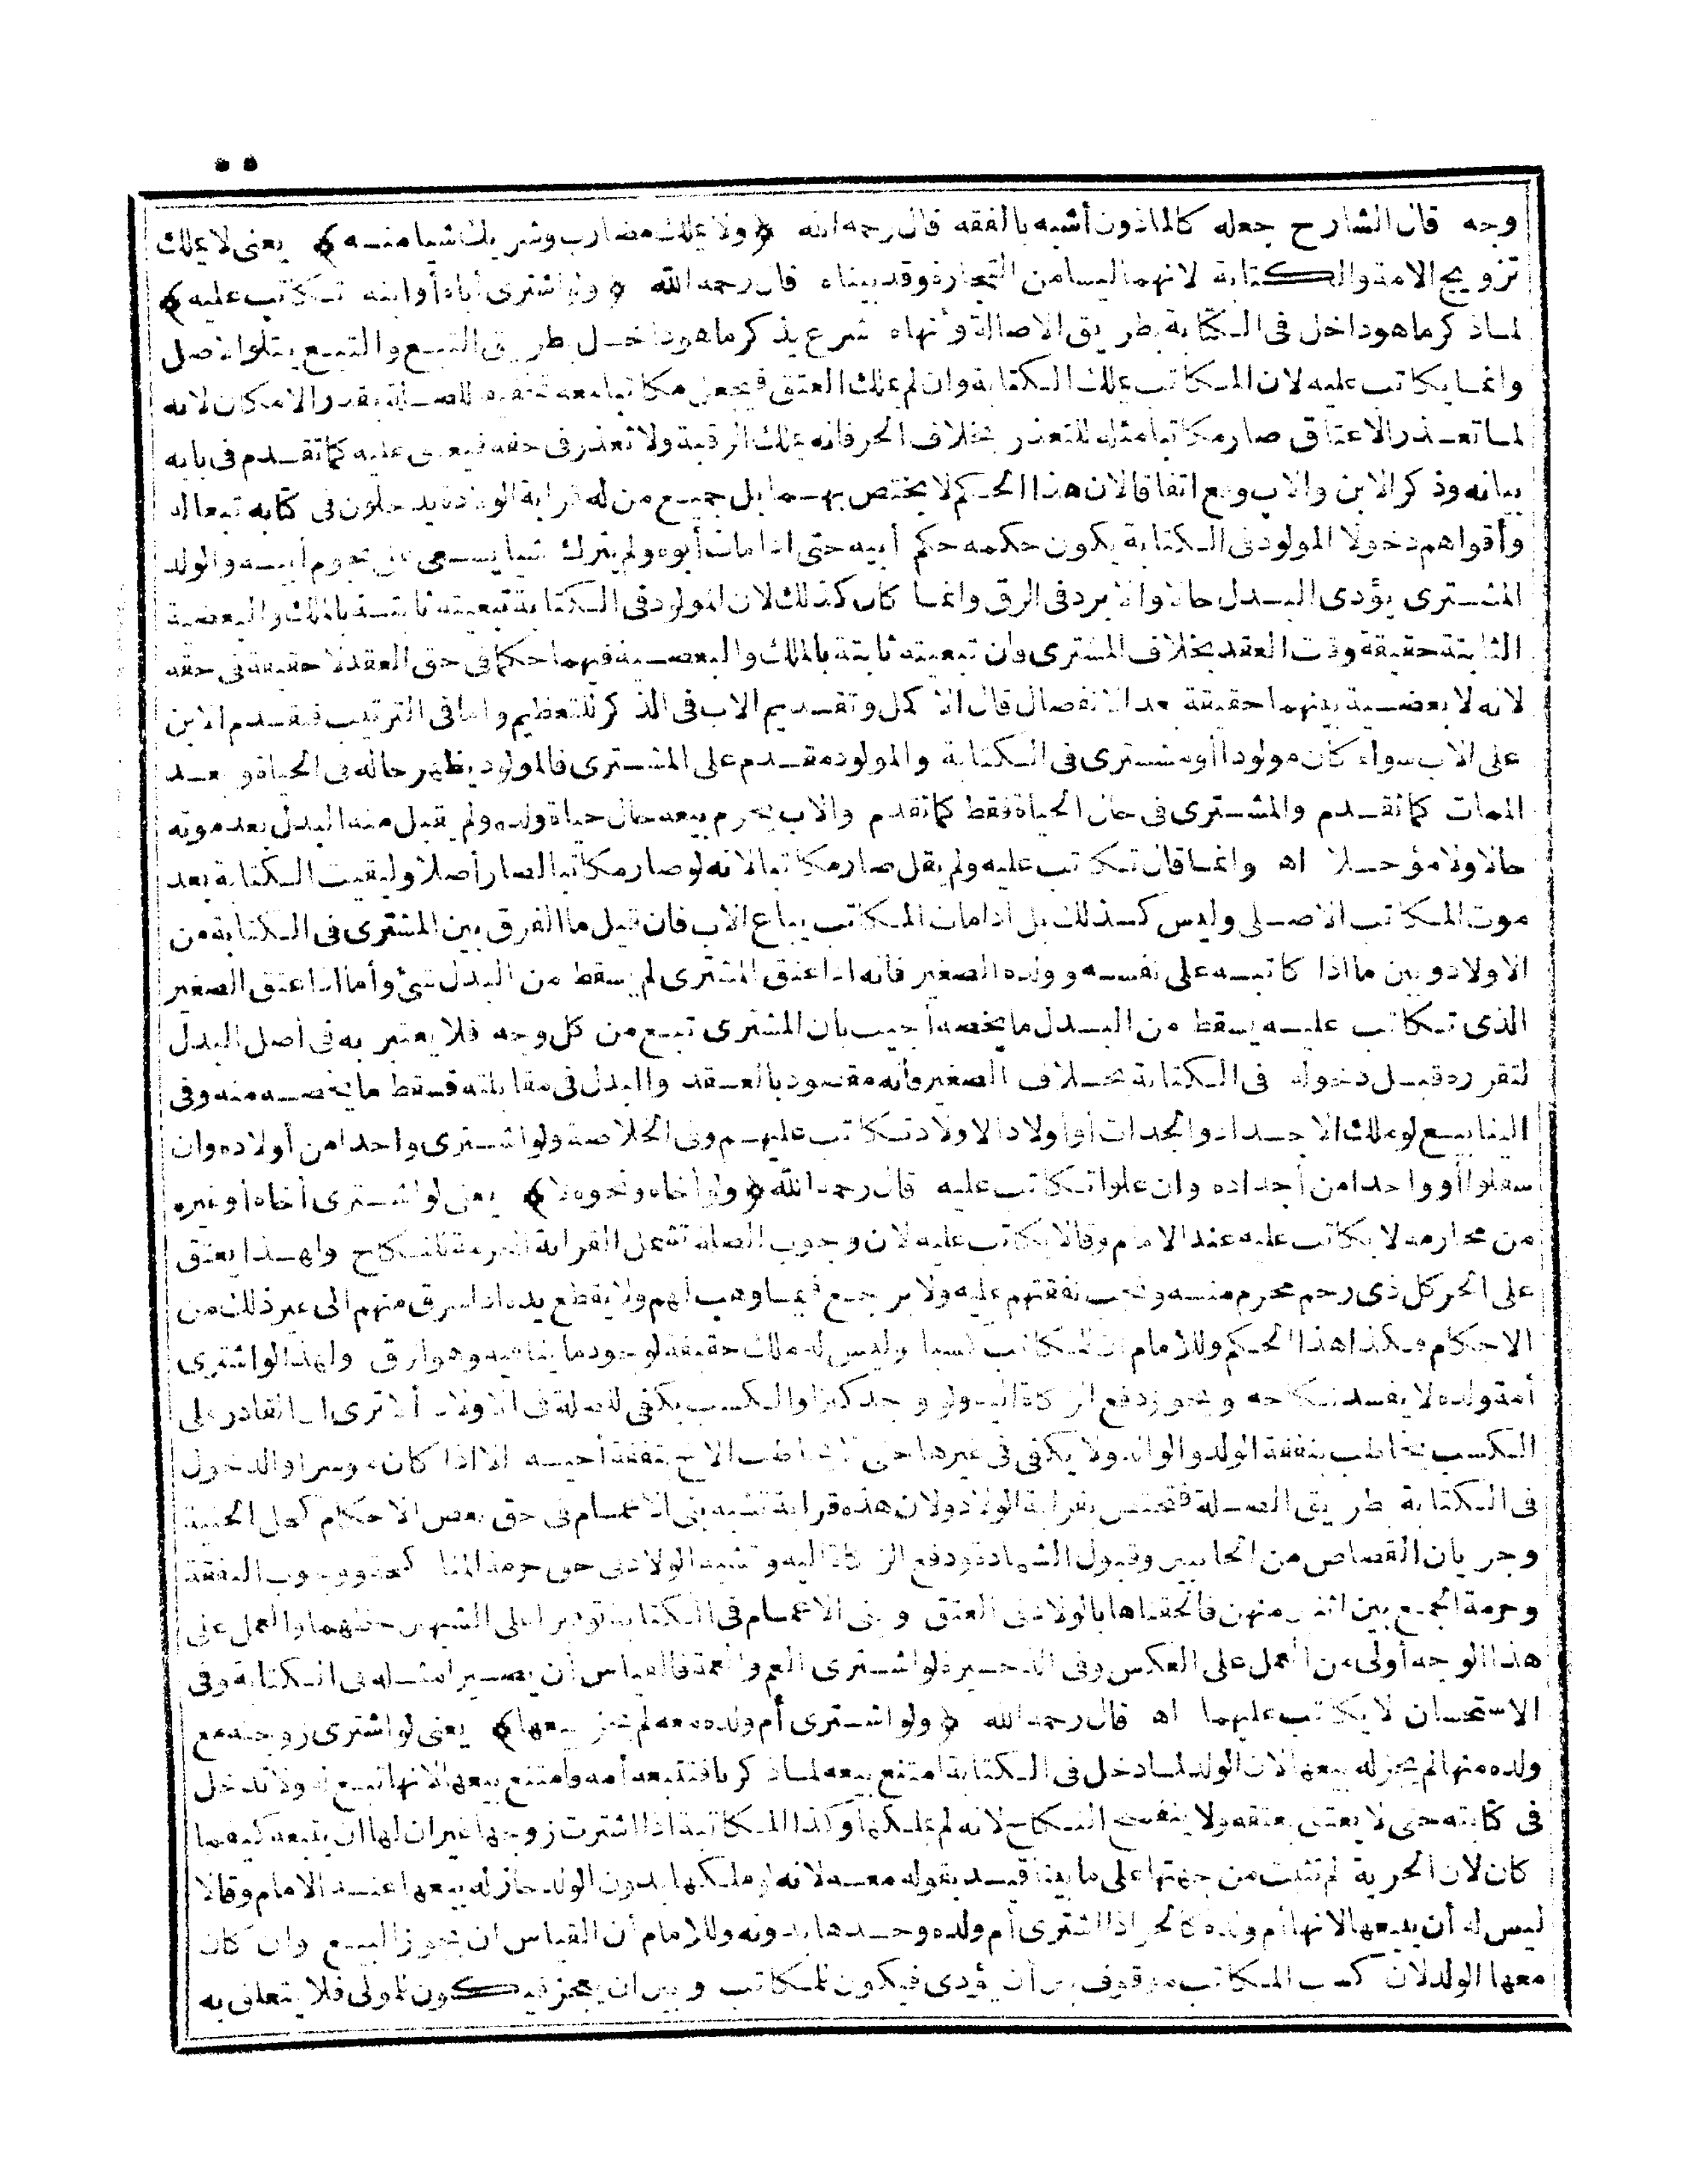 وجه قال الشارح جعله كالماذون أشبه بالفقه قال رحمه الله ﴿ولا يملك مضارب وشريك شيأ منه﴾ يعنى لا يملك
تزويج الامة والكتابة لانهما ليسا من التجارة وقد بيناه قال رحمه الله ﴿ولو اشترى أباه أو ابنه تكاتب عليه﴾
لما ذكر ما هو داخل فى الكتابة بطريق الاصالة وأنهاه شرع يذكر ما هو داخل بطريق التبع والتبع يتلو الاصل
وانما يكاتب عليه لان المكاتب يملك الكتابة وان لم يملك العتق فيجعل مكاتبا معه تحقيقا للصلة بقدر الامكان لانه
لما تعذر الاعتاق صار مكاتبا مثله للتعذر بخلاف الحر فانه يملك الرقبة ولا تعذر فى حقه فيعتق عليه كما تقدم فى بابه
بيانه وذكر الابن والاب وقع اتفاقا لان هذا الحكم لا يختص بهما بل جميع من له قرابة الولادة يدخلون فى كتابه تبعا له
وأقواهم دخولا المولود فى الكتابة يكون حكمه حكم أبيه حتى اذا مات أبوه ولم يترك شيأ يسعى على نجوم أبيه والولد
المشترى يؤدى البدل حالا والا يرد فى الرق وانما كان كذلك لان المولود فى الكتابة تبعيته ثابتة بالملك والبعضية
الثابتة حقيقة وقت العقد بخلاف المشترى وان تبعيته ثابتة بالملك والبعضية فيهما حكما فى حق العقد لا حقيقة فى حقه
لانه لا بعضية بينهما حقيقة بعد الانفصال قال الاكمل وتقديم الاب فى الذكر للتعظيم واما فى الترتيب فيقدم الابن
على الاب سواء كان مولودا أو مشترى فى الكتابة والمولود مقدم على المشترى فالمولود يظهر حاله فى الحياة وبعد
الممات كما تقدم والمشترى فى حال الحياة فقط كما تقدم والاب يحرم بيعه حال حياة ولده ولم يقبل منه البدل بعد موته
حالا ولا مؤجلا اه وانما قال تكاتب عليه ولم يقل صار مكاتبا لانه لو صار مكاتبا لصار أصلا ولبقيت الكتابة بعد
موت المكاتب الاصلى وليس كذلك بل اذا مات المكاتب يباع الاب فان قيل ما الفرق بين المشترى فى الكتابة من
الاولاد وبين ما اذا كاتبه على نفسه وولده الصغير فانه اذا عتق المشترى لم يسقط من البدل شئ وأما اذا عتق الصغير
الذى تكاتب عليه يسقط من البدل ما يخصه أجيب بان المشترى تبع من كل وجه فلا يعتبر به فى أصل البدل
لتقرره قبل دخوله فى الكتابة بخلاف الصغير فانه مقصود بالعقد والبدل فى مقابلته فسقط ما يخصه منه وفى
الينابيع لو ملك الاجداد والجدات أو أولاد الاولاد تكاتب عليهم وفى الخلاصة ولو اشترى واحدا من أولاده وان
سفلوا أو واحدا من أجداده وان علوا تكاتب عليه قال رحمه الله ﴿ولو أخاه ونحوه لا﴾ يعنى لو اشترى أخاه أو غيره
من محارمه لا يكاتب عليه عند الامام وقالا يكاتب عليه لان وجوب الصلة تشمل القرابة المحرمة للنكاح ولهذا يعتق
على الحر كل ذى رحم محرم منه وتجب نفقتهم عليه ولا يرجع فيما وهب لهم ولا يقطع يده اذا سرق منهم الى غير ذلك من
الاحكام فكذا هذا الحكم وللامام ان للمكاتب كسبا وليس له ملك حقيقة لوجود ما ينافيه وهو الرق ولهذا لو اشترى
أمة ولده لا يفسد نكاحه ويجوز دفع الزكاة اليه ولو وجد كنزا والكسب يكفى للصلة فى الاولاد ألا ترى ان القادر على
الكسب يخاطب بنفقة الولد والوالد ولا يكفى فى غيرها حتى لا يخاطب الاخ بنفقة أخيه الا اذا كان موسرا والدخول
فى الكتابة طريق الصلة فتختص بقرابة الولاد ولان هذه قرابة تشبه بنى الاعمام فى حق بعض الاحكام كحل الحليلة
وجريان القصاص من الجانبين وقبول الشهادة ودفع الزكاة اليه وتشبه الولاد فى حق حرمة المناكحة ووجوب النفقة
وحرمة الجمع بين اثنتين منهن فالحقناها بالولاد فى العتق وبنى الاعمام فى الكتابة توفيرا على الشبهين حظهما والعمل على
هذا الوجه أولى من العمل على العكس وفى الذخيرة لو اشترى العم والعمة فالقياس أن يصيرا مثله فى الكتابة وفى
الاستحسان لا يكاتب عليهما اه قال رحمه الله ﴿ولو اشترى أم ولده معه لم يجز بيعها﴾ يعنى لو اشترى زوجته مع
ولده منها لم يجز له بيعها لان الولد لما دخل فى الكتابة امتنع بيعه لما ذكرنا فتتبعه أمه وامتنع بيعها لانها تبع له ولا تدخل
فى كتابته حتى لا يعتق بعتقه ولا ينفسخ النكاح لانه لم يملكها وكذا المكاتبة اذا اشترت زوجها غير ان لها ان يتبعه كيفما
كان لان الحرية لم تثبت من جهتها على ما بينا قيد بقوله معه لانه لو ملكها بدون الولد جاز له بيعها عند الامام وقالا
ليس له أن يبيعها لانها أم ولده كالحر اذا اشترى أم ولده وحدها بدونه وللامام أن القياس ان يجوز البيع وان كان
معها الولد لان كسب المكاتب موقوف بين أن يؤدى فيكون للمكاتب وبين ان يعجز فيكون للمولى فلا يتعلق به